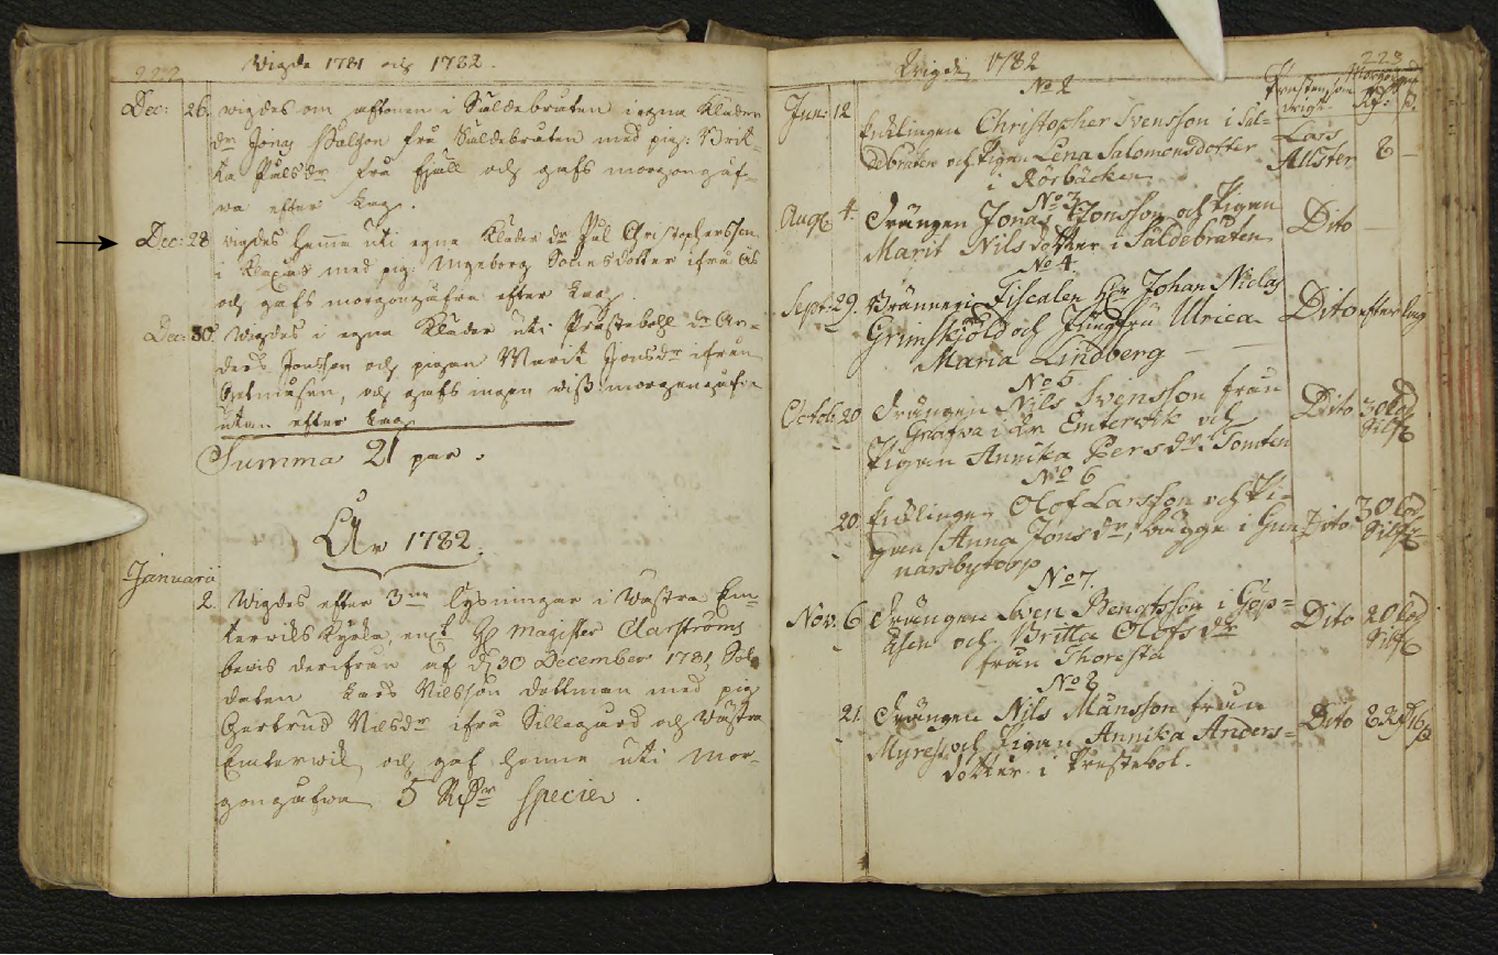 222
Wigda 1781 och 1782.
Dec: 26. wigdes om aftonen i Sÿldebruten i egna Kläder
dr. Jonas från Sÿldebruten med pig: Brit-
ta Pålsdr från Fjäll och gafs morgongåf-
va efter Lag.
Dec: 28 wigdes hemma uti egna Kläder dr Pål Christophersson
i med pig: Ingeborg ifrån Ås
och gafs morgongåfva efter Lag.
Dec: 30. Wigdes i egna Kläder uti Prästebohl dr An-
ders Jonsson och pigan Marit Jonsdr ifrån
och gafs ingen wiss morgongåfva
utan efter Lag
Summa 21 par.
År 1782.
Januarii
2. Wigdes efter 3ne lysningar i Wästra Em-
terwiks Kyrka, enl. Hr Magister Clarströms
bewis derifrån af d. 30 December 1781, Sol-
daten Lars Nilsson Dallman med pig
Gertrud Nilsdr ifrån Sillegård och Wästra
Emterwik, och gaf henne uti mor-
gongåfwa 5 RDr Specier.
223
Wigde 1782
No 2
Jun: 12 Enklingen Christopher Svensson i Säl-
debråten och Pigan Lena Salomonsdotter
i Rörbäcken
Lars
Allster 8 —
No 3
Aug. 4. Drängen Jonas Jonsson och Pigan
Marit Nilsdotter i Säldebråten
Dito —
No 4.
Sept: 29. Bränneri Fiscalen Hr Johan Niclas
Grimskjöld och Jungfru Ulrica
Maria Lindberg
Dito efter lag
No 5.
Octob. 20 Drängen Nils Svensson från
Gräfva i Ör Emterwik och
Pigan Annika Persdr. i Tomten
Dito 30 lod
Silf.
No 6
20. Enklingen Olof Larsson och Pi-
gan Anna Jonsdr, bägge i Gun-
narsbytorp
Dito 30 lod
Silf.
No 7.
Nov. 6 Drängen Sven Bengtsson i Göp-
åsen och Britta Olofsdr
från Thoresta
Dito 20 lod
Silf.
No 8
21. Drängen Nils Månsson från
Myren och Pigan Annika Anders-
dotter i Prestebol.
Dito 8 Rd 16 s